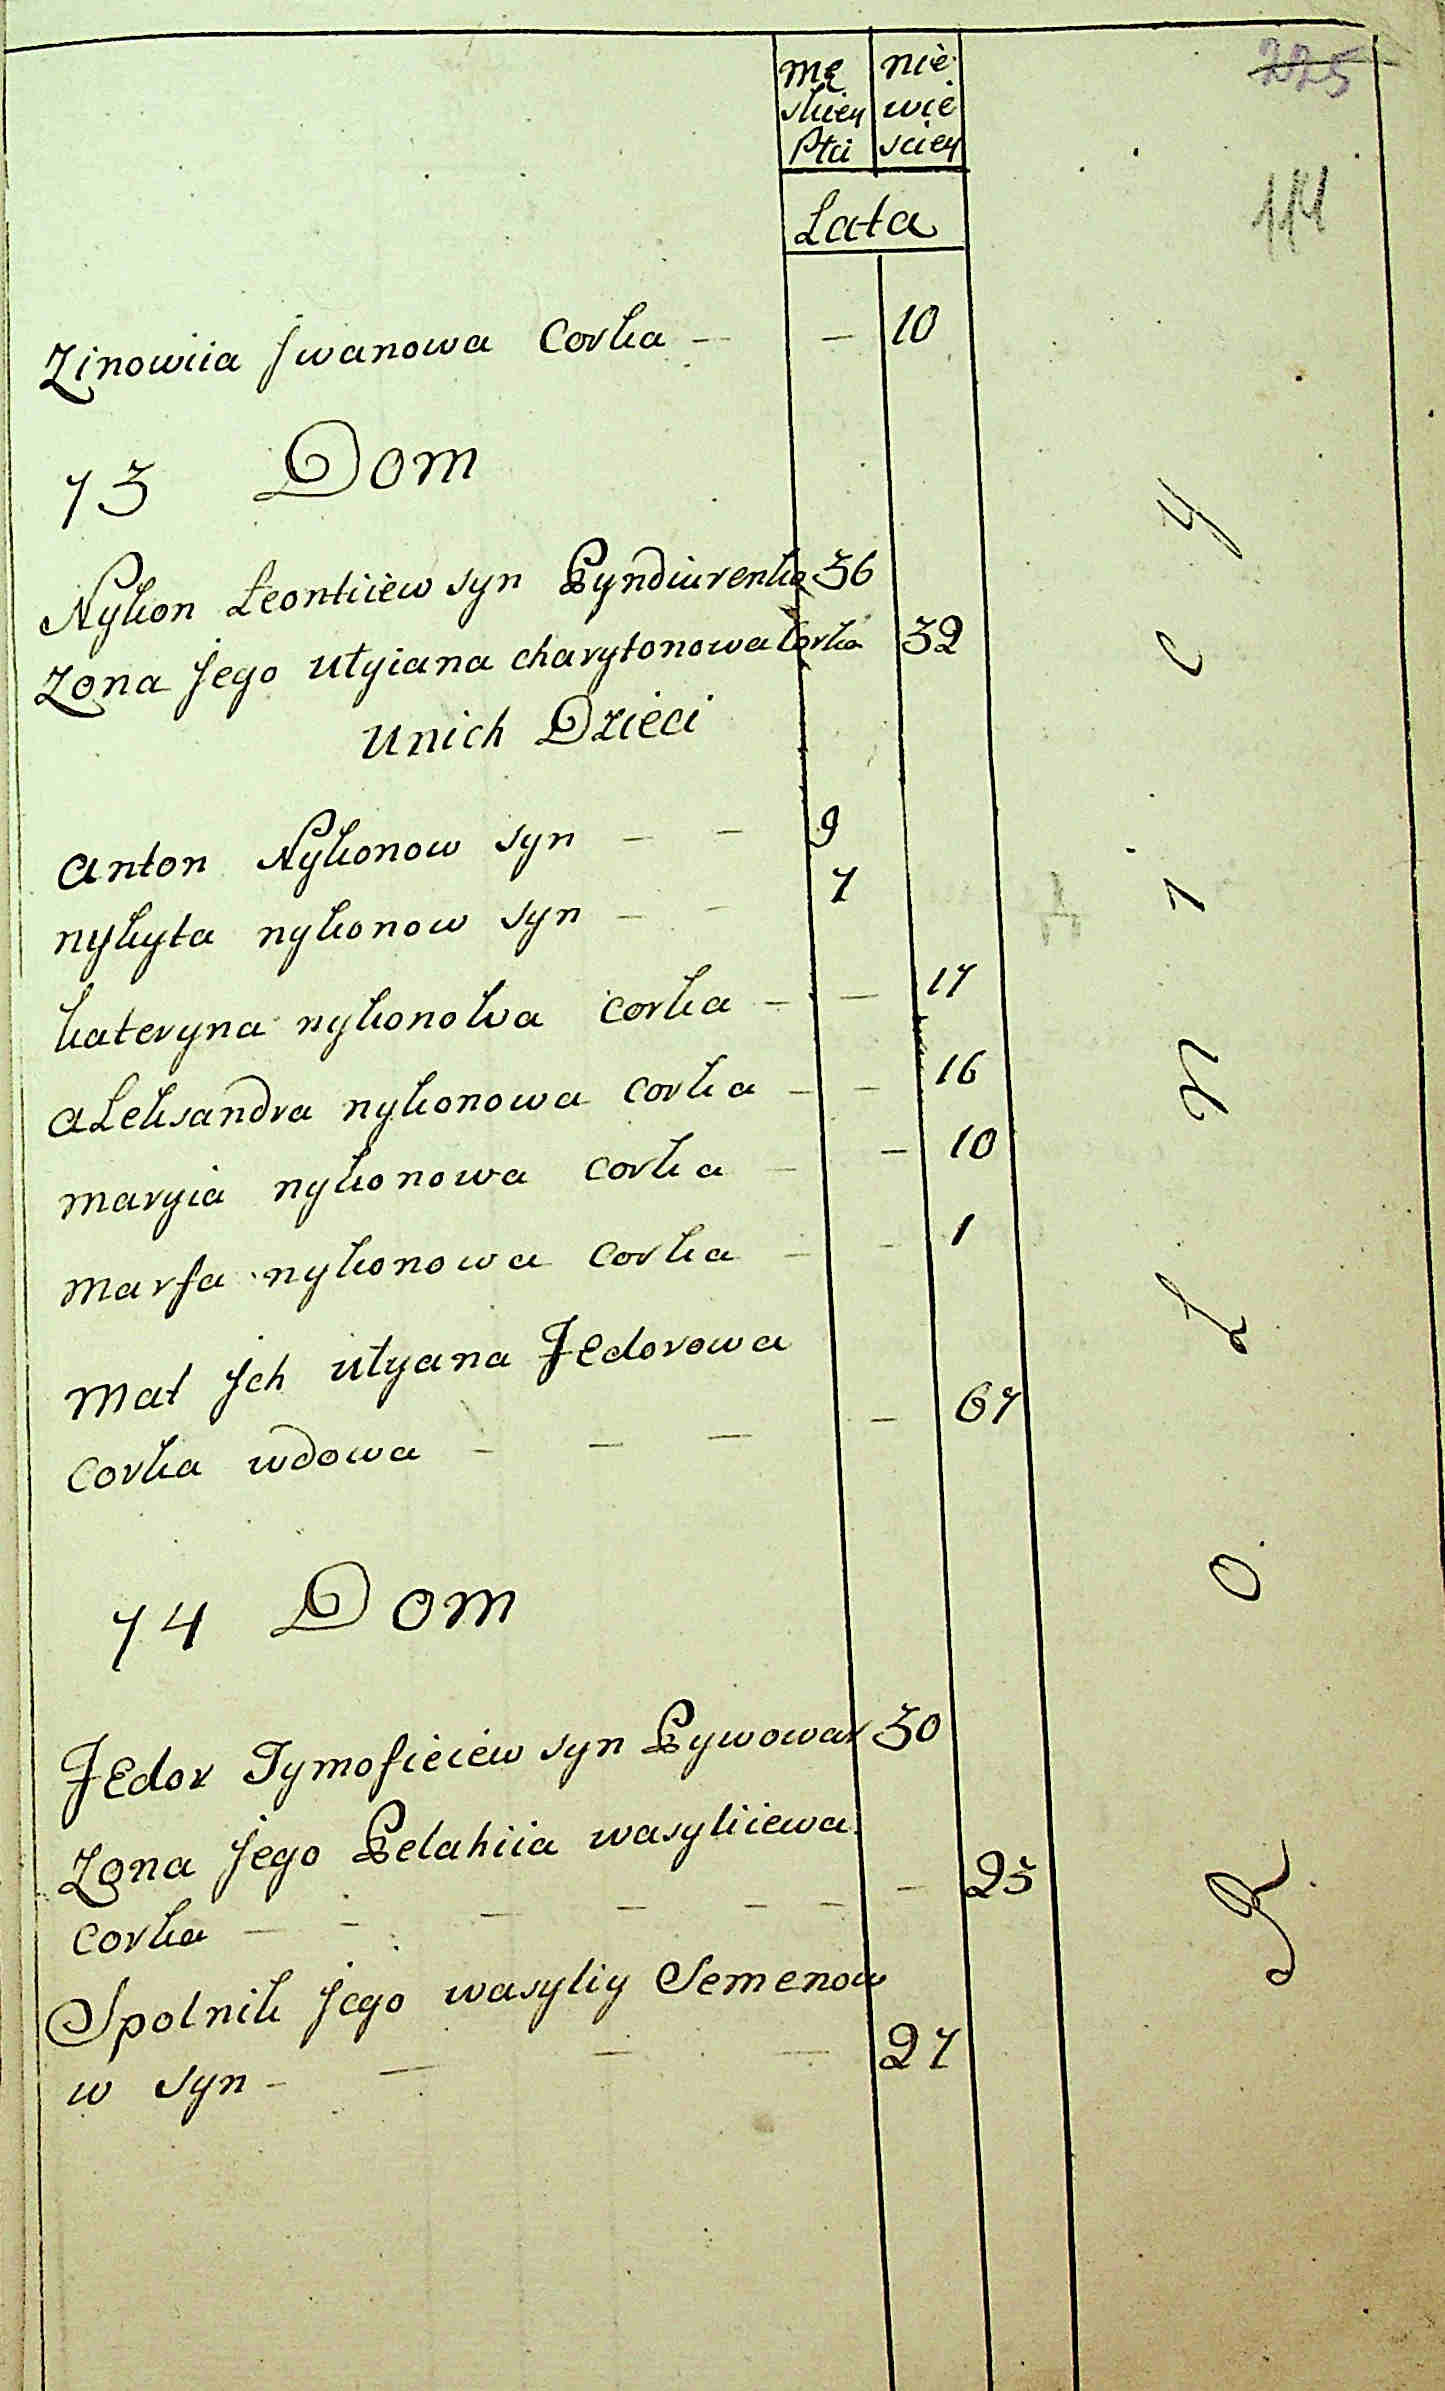 225
114
mę nie
skiey wie
Płci sciey
Lata
Zinowiia Jwanowa Corka — — 10
73 Dom
Nykon Leontiiew syn Pyndiurenko 36
Zona Jego Utyiana charytonowa Corka 32
Unich Dzieci
Anton Nykonow syn — — 9
nykyta nykonow syn — — 7
kateryna nykonowa corka — — 17
aLeksandra nykonowa corka — — 16
maryia nykonowa corka — — 10
marfa nykonowa corka — — 1
mat Jch utyana Fedorowa
corka wdowa — — — — 67
74 Dom
Fedor Tymofieiew syn Pywowar 30
Zona Jego Pelahiia wasyliiewa
corka — — — — — — — 25
Spolnik Jego wasyliy Semenow
w syn — — — — 27
R o l n i c y